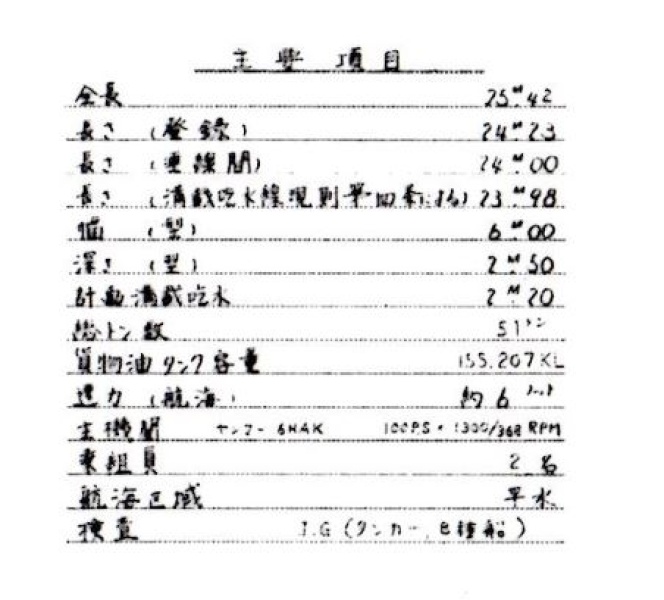 主要項目
全長 25M.42
長さ (登録) 24M.23
長さ (垂線間) 24M.00
長さ (満載吃水線規則第四条による) 23M.98
幅 (型) 6M.00
深さ (型) 2M.50
計画満載吃水 2M.20
総トン数 51トン
貨物油タンク容量 155.207KL
速力 (航海) 約6ノット
主機関 ヤンマー 6HAK 100PS × 1300/368 RPM
乗組員 2名
航海区域 平水
検査 J.G (タンカー, 種船)